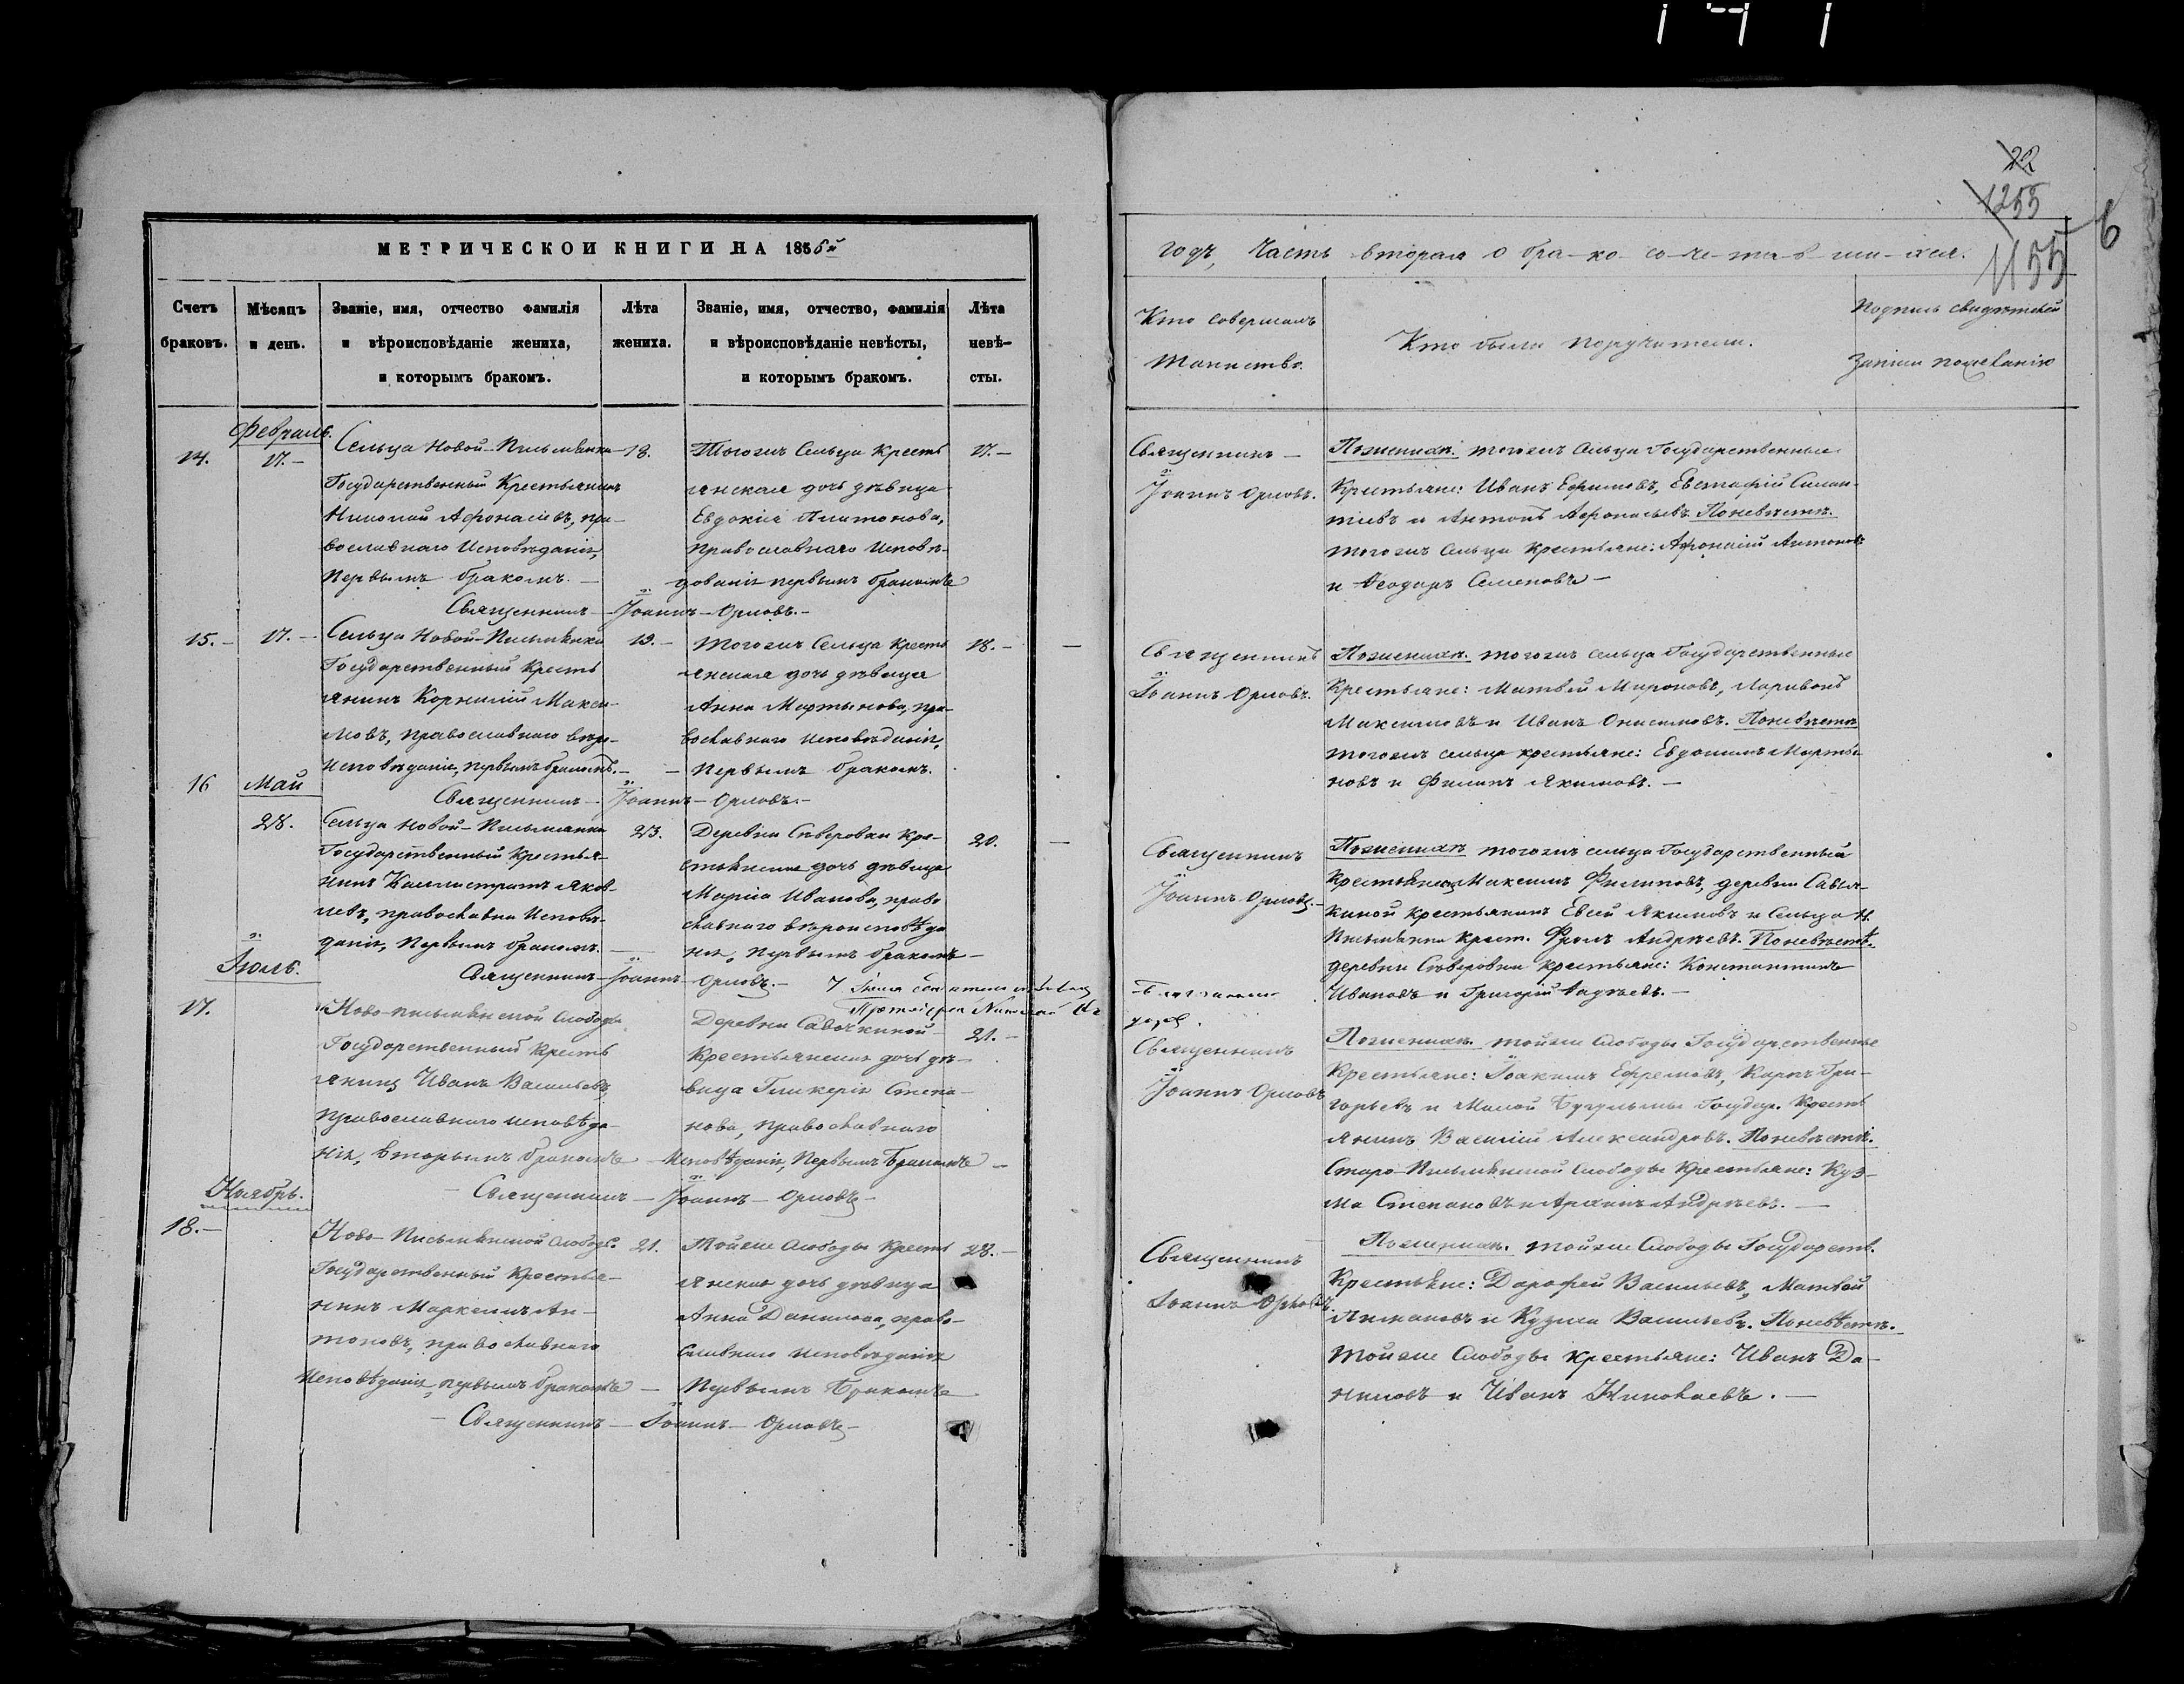 22
1255
1155
6
МЕТРИЧЕСКОЙ КНИГИ НА 1856й
годъ, Часть вторая о бра-ко-со-че-та-в-ши-хся.
Счетъ браковъ.
Мѣсяцъ и день.
Званіе, имя, отчество фамилія
и вѣроисповѣданіе жениха,
и которымъ бракомъ.
Лѣта жениха.
Званіе, имя, отчество, фамилія
и вѣроисповѣданіе невѣсты,
и которымъ бракомъ.
Лѣта невѣ-
сты.
Кто совершалъ
таинство.
Кто были поручители.
Подпись свидѣтелей
записи по желанію
Февраль.
14.
17.-
Сельца Новой-Письмянки
Государственный Крестьянинъ
Николай Афонасьевъ, пра-
вославнаго Исповѣданія,
первымъ бракомъ.-
18.
Тогожъ Сельца Кресть
янская дочь дѣвица
Евдокія Платонова,
православнаго Исповѣ-
дованія первымъ бракомъ
17.-
Священникъ - Іоаннъ - Орловъ.-
Священникъ -
Іоаннъ Орловъ.
По женихѣ. тогожъ Сельца Государственные
Крестьяне: Иванъ Ефимовъ, Евстафій Силан-
тьевъ и Антонъ Афонасьевъ. По невѣстѣ.
тогожъ Сельца крестьяне: Афонасій Антоновъ
и Ѳеодоръ Семеновъ -
15.-
17.-
Сельца Новой-Письмянки
Государственный Кресть
янинъ Корнилій Макси-
мовъ, православнаго вѣро-
Исповѣданія, первымъ бракомъ.-
19.-
тогожъ Сельца Кресть
янская дочь дѣвица
Анна Мартынова, пра-
вославнаго исповѣданія,
первымъ бракомъ.
18.-
Священникъ - Іоаннъ - Орловъ.-
Священникъ
Іоаннъ Орловъ.
По женихѣ. тогожъ сельца Государственные
Крестьяне: Матвѣй Мироновъ, Ларивонъ
Максимовъ и Иванъ Онисимовъ. По невѣстѣ
тогожъ сельца крестьяне: Евдокимъ Марты-
новъ и Филипъ Якимовъ.-
16
Май
28.
Сельца Новой-Письмянки
Государственный Крестья-
нинъ Каллистратъ Яков-
левъ, православна Исповѣ-
данія, первымъ бракомъ.-
23.
Деревни Сѣверовки Кре-
стьянская дочь дѣвица
Марія Иванова, право
славнаго вѣроисповѣда
нія, первымъ бракомъ-
20.
Священникъ - Іоаннъ - Орловъ.-
Священникъ
Іоаннъ Орловъ.-
По женихѣ тогожъ сельца Государственный
крестьянинъ Максимъ Филиповъ, деревни Савоч-
киной крестьянинъ Евсѣй Якимовъ и Сельца Н.
Письмянки крест. Фролъ Андрѣевъ. По невѣстѣ.
деревни Сѣверовки крестьяне: Константинъ
Ивановъ и Григорій Фадѣевъ.-
Протоіерей
Іюль.
17.
Ново-письмянской слободы
Государственный Кресть
янинъ Иванъ Васильевъ,
православнаго исповѣда-
нія, вторымъ бракомъ
Деревни Савочкиной-
Крестьянская дочь дѣ-
вица Гликерія Степа-
нова, православнаго
исповѣданія, первымъ бракомъ -
21.-
- Священникъ - Іоаннъ - Орловъ-
Священникъ
Іоаннъ Орловъ
По женихѣ. тойже слободы Государственные
Крестьяне: Іоакимъ Ефремовъ, Карпъ Гри-
горьевъ и Малой Бугульмы Государ. Кресть
янинъ Василій Александровъ. По невѣстѣ.
Старо-Письмянской слободы Крестьяне: Куз-
ма Степановъ и Архипъ Андрѣевъ.-
Ноябрь.
18.-
Ново-Письмянской слободы
Государственный Крестья-
нинъ Маркелъ Ан-
тоновъ, православнаго
Исповѣданія, первымъ бракомъ
21.
Тойже слободы Кресть
янская дочь дѣвица
Анна Данилова, право-
славнаго исповѣданія
Первымъ Бракомъ
28.-
- Священникъ - Іоаннъ - Орловъ-
Священникъ
Іоаннъ Орловъ.
По женихѣ. тойже Слободы Государств.
Крестьяне: Дорофей Васильевъ, Матвѣй
и Кузьма Васильевъ. По невѣстѣ.
тойже Слободы крестьяне: Иванъ Да-
ниловъ и Иванъ Николаевъ.-